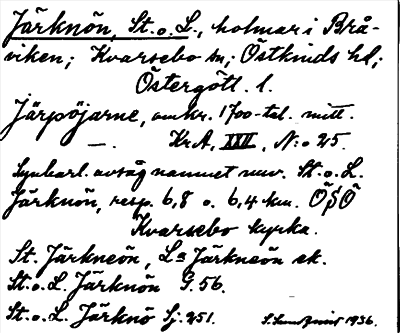 Järknön, St. o. L., holmar i Brå-
viken; Kvarsebo sn; Östkinds hd;
Östergötl. l.
Järpöjarne, omkr. 1700-tal. mitt.
—. Kr.A, XXII, N:o 25.
Synbarl. avsåg namnet nuv. St. o. L.
Järknön, resp. 6,8 o. 6,4 km. ÖSÖ
Kvarsebo kyrka.
St. Järkneön, La Järkneön ek.
St. o. L. Järknön G. 56.
St. o. L. Järknö Sj. 251.
1936.